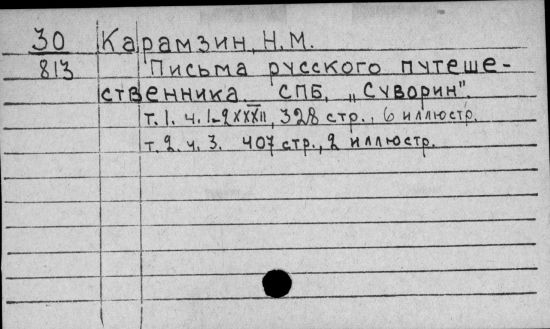 30 Карамзин, Н.М.
813 Письма русского путеше-
ственника. СПБ, „Суворин".
т. 1. ч. 1-2 XXXII, 328 стр., 6 иллюстр.
т. 2. ч. 3. 407 стр., 2 иллюстр.